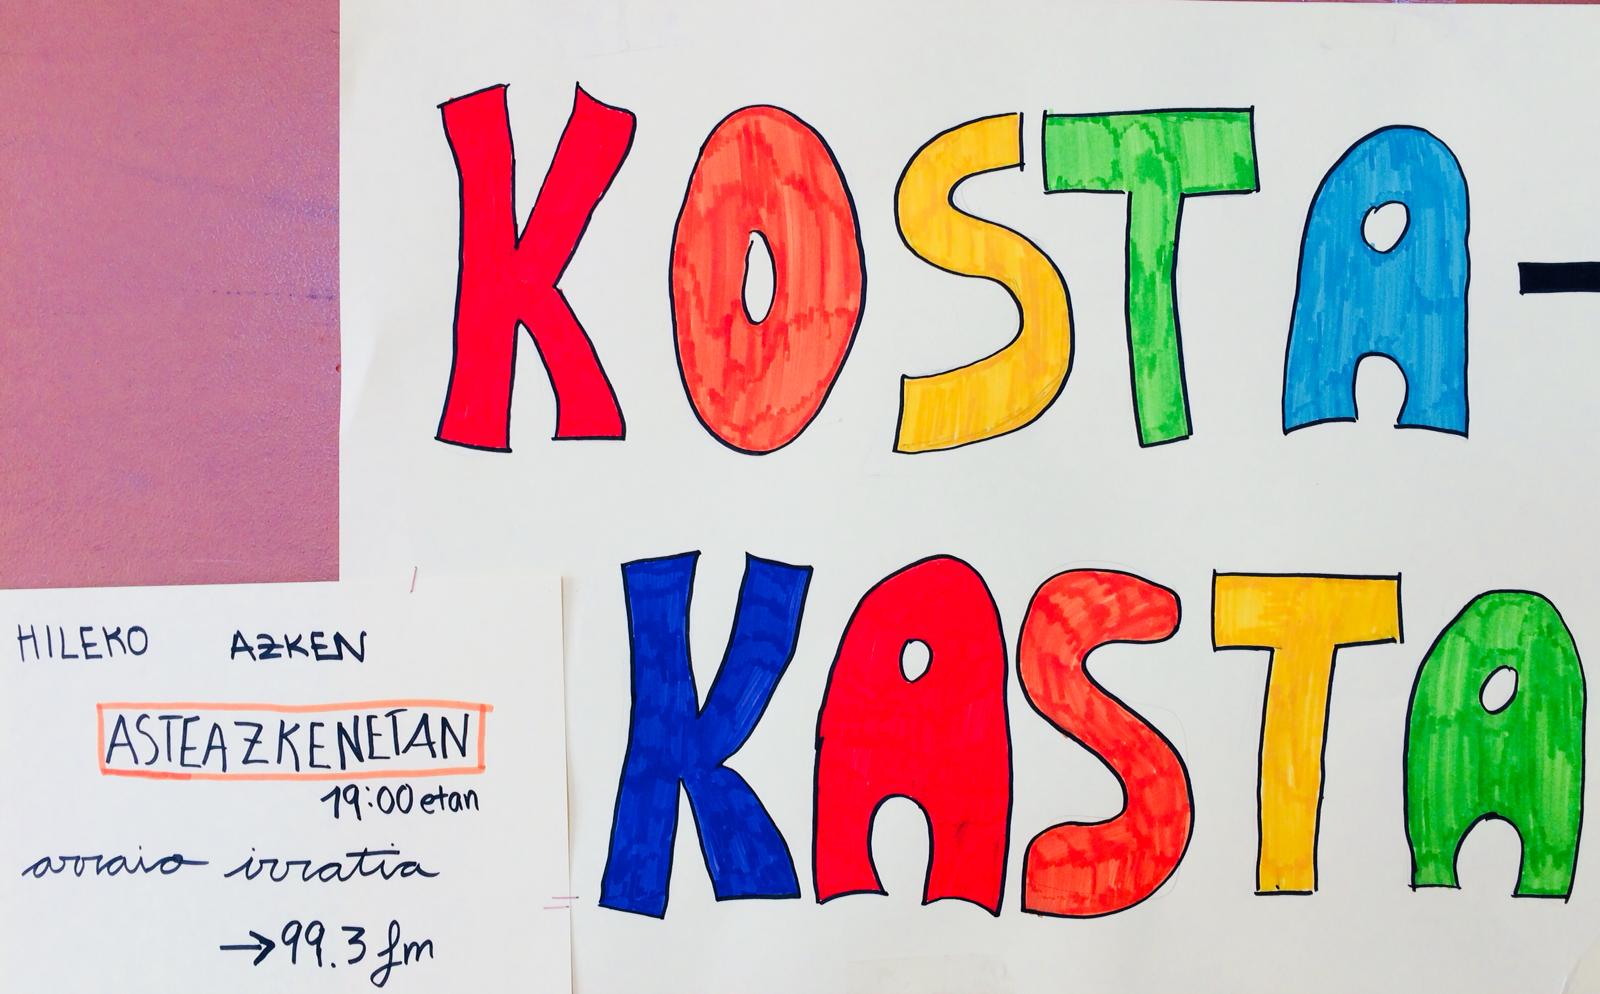 KOSTA-
KASTA
HILEKO AZKEN
ASTEAZKENETAN
19:00 etan
arraio irratia
→ 99.3 fm